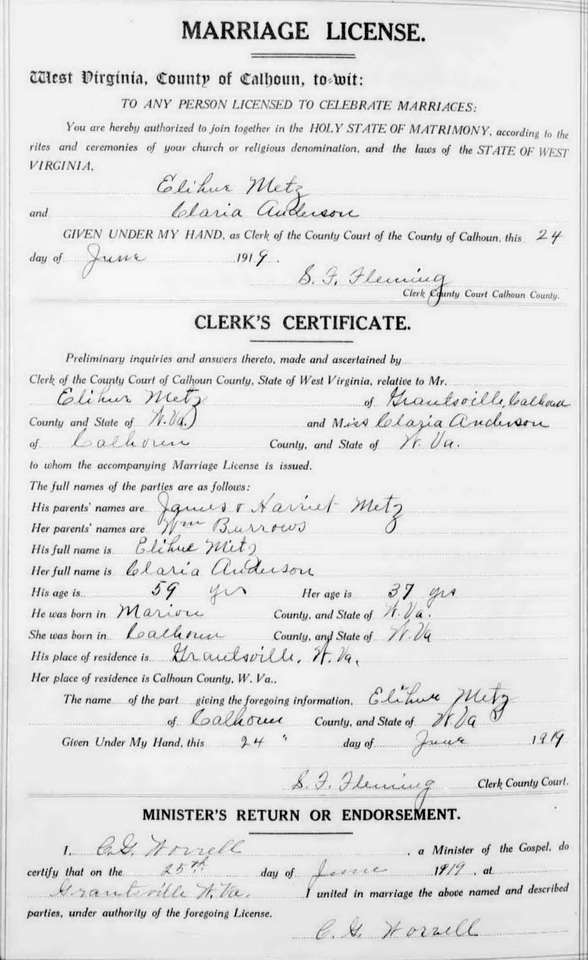 MARRIAGE LICENSE.
West Virginia, County of Calhoun, to-wit:
TO ANY PERSON LICENSED TO CELEBRATE MARRIAGES:
You are hereby authorized to join together in the HOLY STATE OF MATRIMONY, according to the
rites and ceremonies of your church or religious denomination, and the laws of the STATE OF WEST
VIRGINIA,
Elihue Metz
and Claria Anderson
GIVEN UNDER MY HAND, as Clerk of the County Court of the County of Calhoun, this 24
day of June 1919.
S. F. Fleming
Clerk County Court Calhoun County.
CLERK'S CERTIFICATE.
Preliminary inquiries and answers thereto, made and ascertained by
Clerk of the County Court of Calhoun County, State of West Virginia, relative to Mr.
Elihue Metz of Grantsville, Calhoun
County and State of W. Va. and Miss Claria Anderson
of Calhoun County, and State of W. Va.
to whom the accompanying Marriage License is issued.
The full names of the parties are as follows:
His parents' names are James & Harriet Metz
Her parents' names are Wm Burrows
His full name is Elihue Metz
Her full name is Claria Anderson
His age is 59 yrs Her age is 37 yrs
He was born in Marion County, and State of W. Va.
She was born in Calhoun County, and State of W. Va
His place of residence is Grantsville, W. Va.
Her place of residence is Calhoun County, W. Va.,
The name of the part giving the foregoing information, Elihue Metz
of Calhoun County, and State of W Va
Given Under My Hand, this 24 " day of June 1919
S. F. Fleming Clerk County Court.
MINISTER'S RETURN OR ENDORSEMENT.
I, C. G. Worrell, a Minister of the Gospel, do
certify that on the 25th day of June 1919, at
Grantsville W. Va. I united in marriage the above named and described
parties, under authority of the foregoing License.
C. G. Worrell